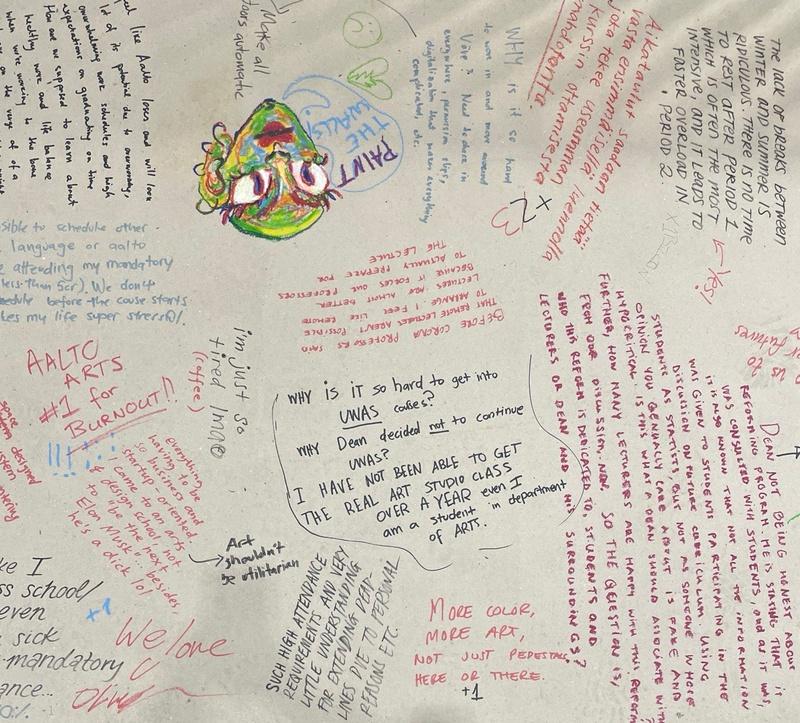 feel like Aalto loses and will lose
lot of its potential due to overwhelmy,
overwhelming work schedules and high
expectations on graduating on time
How are we supposed to learn about
healthy work and life balance
when we're working to the bone
on the verge of a
Make all
doors automatic
PAINT
THE
WALLS!
WHY is it so hard
to work in and move around
Väre? Need to have in
everywhere, permission slips,
digitalization that makes everything
complicated, etc.
Aikataulut saadaan tietää
vasta ensimmäisellä luennolla
Joka tekee useamman
kurssin ottamisesta
mahdotonta.
x23
THE LACK OF BREAKS BETWEEN
WINTER AND SUMMER IS
RIDICULOUS. THERE IS NO TIME
TO REST AFTER PERIOD 1
WHICH IS OFTEN THE MOST
INTENSIVE, AND IT LEADS TO
FASTER OVERLOAD IN
PERIOD 2.
← Yes!
sible to schedule other
language or aalto
attending my mandatory
less than 5cr). We don't
edule before the course starts
kes my life super stressful.
BEFORE CORONA PROFESSORS SAID
THAT REMOTE LECTURES AREN'T POSSIBLE
TO ARRANGE. I FEEL LIKE REMOTE
LECTURES ARE ALMOST BETTER
BECAUSE IT FORCES OUR PROFESSORS
TO ACTUALLY PREPARE FOR
THE LECTURE
AALTO
ARTS
#1 for
BURNOUT!!
!!!
i'm just so
tired imao
(coffee)
everything
having to be
so business and
startup oriented.
I came to an arts
& design school, not
to be the next
Elon Musk... besides,
he's a dick lol
→ Art
shouldn't
be utilitarian
WHY IS it so hard to get into
UWAS courses?
WHY Dean decided not to continue
UWAS?
I HAVE NOT BEEN ABLE TO GET
THE REAL ART STUDIO CLASS
OVER A YEAR even I
am a student in department
of ARTS.
DEAN NOT BEING HONEST ABOUT
REFORMING PROGRAM. HE IS STATING THAT it
WAS CONSULTED WITH STUDENTS, and as it was,
it is also known that not all the information
WAS GIVEN TO STUDENTS PARTICIPATING IN THE
DISCUSSION ON FUTURE CURRICULUM. USING
STUDENTS AS STATISTS BUT NOT AS SOMEONE WHOSE
OPINION YOU GENUALLY CARE ABOUT IS FAKE AND
HYPOCRITICAL. IS THIS WHAT A DEAN SHOULD ASSOCIATE WITH
FURTHER, HOW MANY LECTURERS ARE HAPPY WITH THIS REFORM
FROM OUR DISCUSSION, NON. SO THE QUESTION IS,
WHO THIS REFORM IS DEDICATED TO, STUDENTS AND
LECTURERS OR DEAN AND HIS SURROUNDINGS?
us to
futures
ke I
ss school/
even
sick
mandatory
ance...
0%.
+1
We love
SUCH HIGH ATTENDANCE
REQUIREMENTS AND VERY
LITTLE UNDERSTANDING
FOR EXTENDING DEAD-
LINES DUE TO PERSONAL
REASONS ETC.
MORE COLOR,
MORE ART,
NOT JUST PEDESTALS
HERE OR THERE.
+1